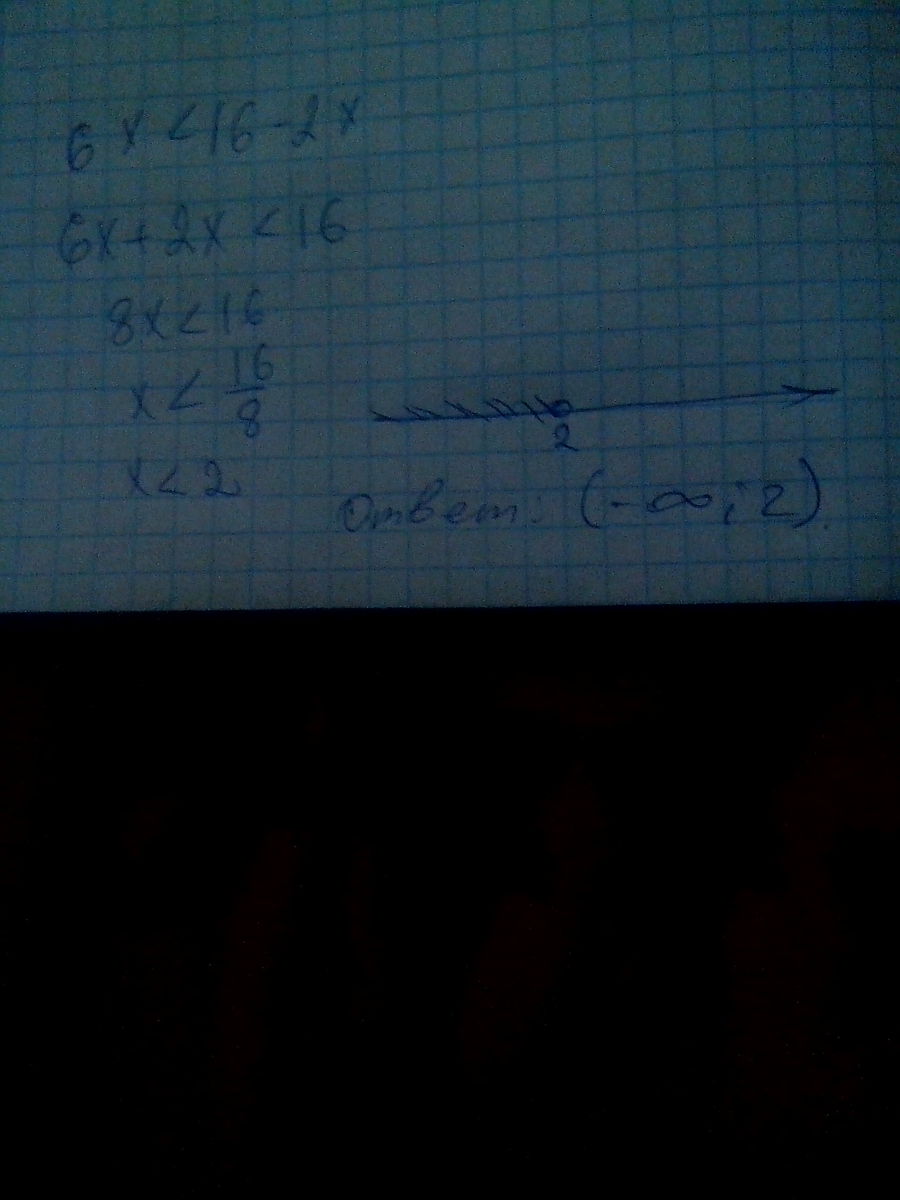 6x < 16 - 2x
6x + 2x < 16
8x < 16
x < 16/8
2
x < 2
Ответ: (-∞; 2).